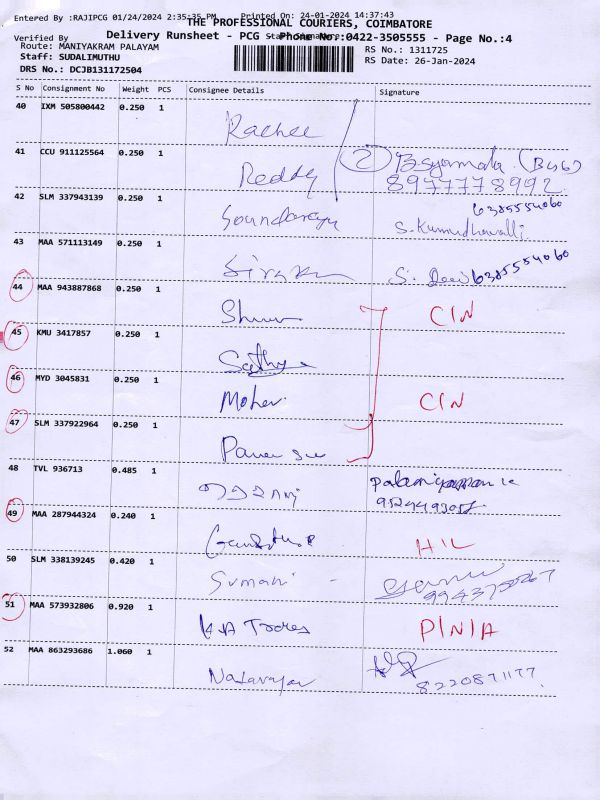 Entered By :RAJIPCG 01/24/2024 2:35:35 PM Printed On: 24-01-2024 14:37:43
THE PROFESSIONAL COURIERS, COIMBATORE
Verified By
Delivery Runsheet - PCG Phone No.:0422-3505555 - Page No.:4
Route: MANIYAKRAM PALAYAM
RS No.: 1311725
Staff: SUDALIMUTHU
RS Date: 26-Jan-2024
DRS No.: DCJB131172504
S No Consignment No Weight PCS Consignee Details Signature
40 IXM 505800442 0.250 1
41 CCU 911125564 0.250 1
Reddy 2 B.syamala (Bus6)
8977778992
42 SLM 337943139 0.250 1
6385554060
Soundaraya S.Kumudhavalli
43 MAA 571113149 0.250 1
S. Devi 6385554060
44 MAA 943887868 0.250 1
CIN
45 KMU 3417857 0.250 1
Sathya
46 MYD 3045831 0.250 1
Mohan CIN
47 SLM 337922964 0.250 1
48 TVL 936713 0.485 1
49 MAA 287944324 0.240 1
HIL
50 SLM 338139245 0.420 1
Sumani -
51 MAA 573932806 0.920 1
K.A Trades P/N/A
52 MAA 863293686 1.060 1
Natarajan
8220871177